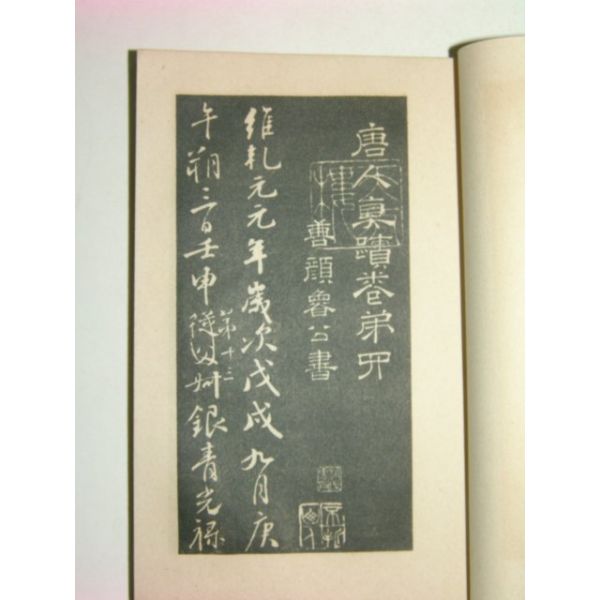 唐人真蹟卷弟四
魯顏魯公書
維乾元元年歲次戊戌九月庚
午朔三日壬申第十三從父㓜銀青光禄